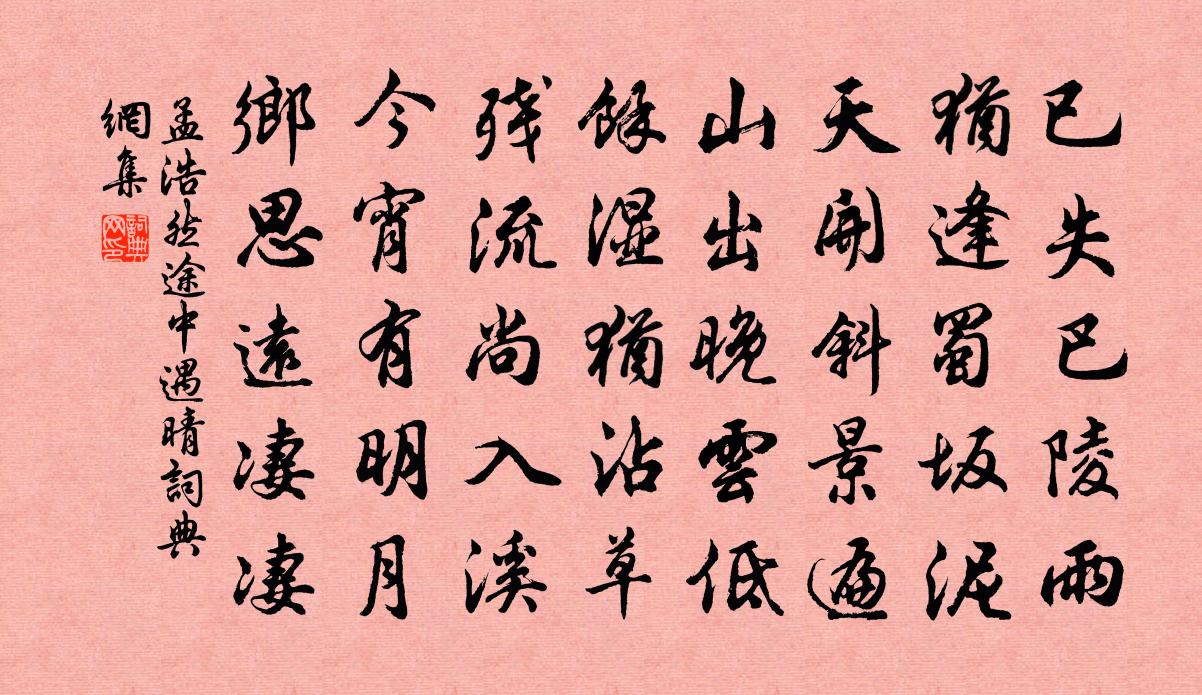 已失巴陵雨
猶逢蜀坂泥
天開斜景遍
山出晚雲低
餘湿猶沾草
残流尚入溪
今宵有明月
鄉思遠凄凄
孟浩然途中遇晴詞典
網集
詞典
网印